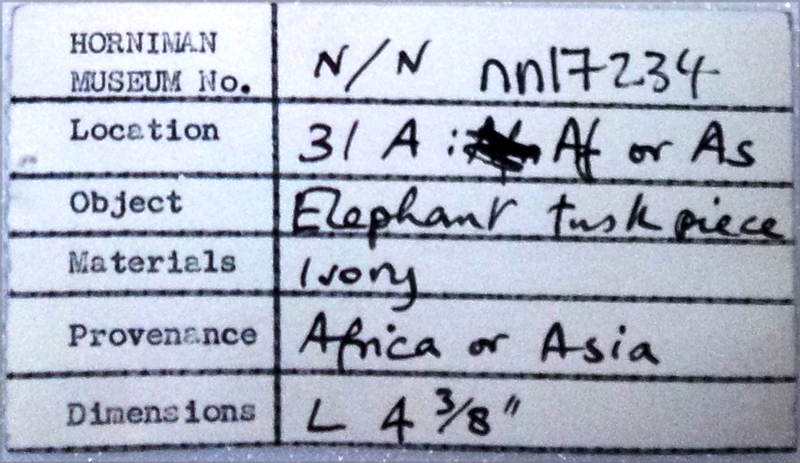 HORNIMAN
MUSEUM No. N/N nn17234
Location 31 A : Af or As
Object Elephant tusk piece
Materials Ivory
Provenance Africa or Asia
Dimensions L 4 3/8"